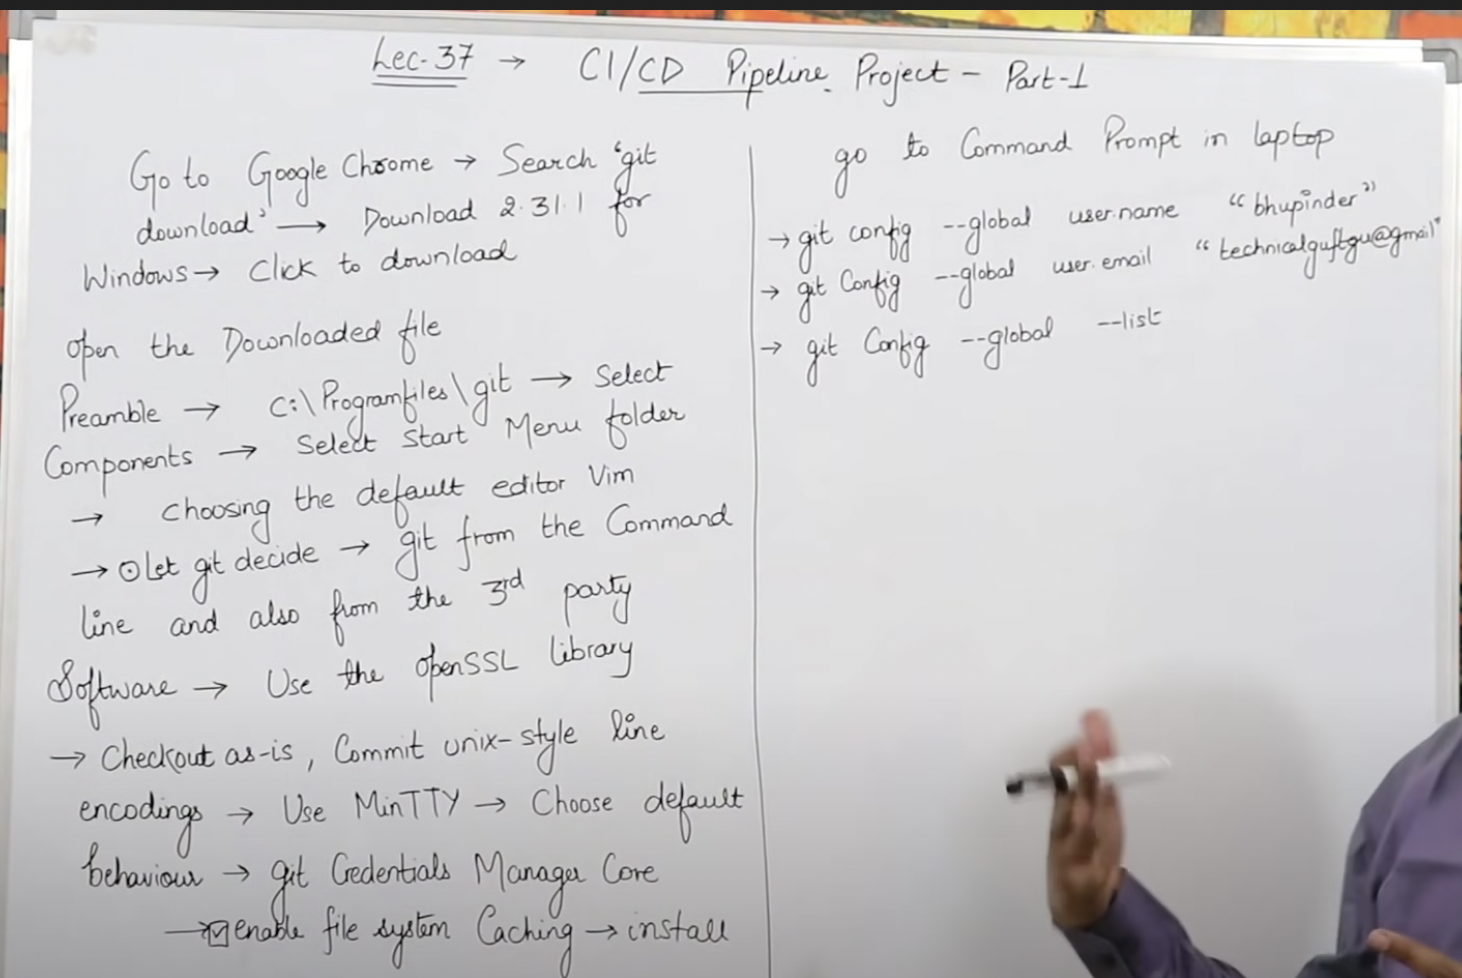 Lec-37 → CI/CD Pipeline Project - Part-1
Go to Google Chrome → Search 'git
download' → Download 2.31.1 for
Windows → Click to download
open the Downloaded file
Preamble → C:\Programfiles\git → Select
Components → Select Start Menu folder
→ choosing the default editor Vim
→ ⊙ Let git decide → git from the Command
line and also from the 3rd party
Software → Use the openSSL library
→ Checkout as-is, Commit unix-style line
encodings → Use MinTTY → Choose default
behaviour → git Credentials Manager Core
→ ☑ enable file system Caching → install
go to Command Prompt in laptop
→ git config --global user.name "bhupinder"
→ git Config --global user.email "technicalguftgu@gmail"
→ git Config --global --list